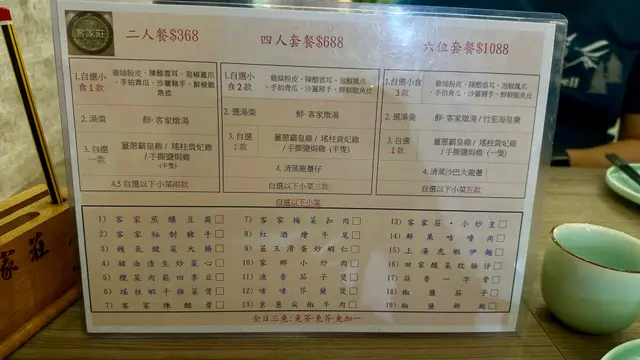 客家莊
二人餐$368
四人套餐$688
六位套餐$1088
1.自選小食1款
雞絲粉皮、陳醋雲耳、泡椒鳳爪、手拍青瓜、沙薑豬手、鮮椒脆魚皮
2. 湯羹
鮮·客家燉湯
3. 自選一款
薑蔥霸皇雞/瑤柱貴妃雞/手撕鹽焗雞
(半隻)
4,5 自選以下小菜兩款
1.自選小食2款
雞絲粉皮、陳醋雲耳、泡椒鳳爪、手拍青瓜、沙薑豬手、鮮椒脆魚皮
2. 選湯羹
鮮·客家燉湯
3. 自選1款
薑蔥霸皇雞/瑤柱貴妃雞/手撕鹽焗雞(半隻)
4.清蒸龍躉仔
自選以下小菜三款
1.自選小食3款
雞絲粉皮、陳醋雲耳、泡椒鳳爪、手拍青瓜、沙薑豬手、鮮椒脆魚皮
2. 選湯羹
鮮·客家燉湯/竹笙海皇羹
3.自選1款
薑蔥霸皇雞/瑤柱貴妃雞/手撕鹽焗雞(一隻)
4.清蒸沙巴大龍躉
自選以下小菜五款
自選以下小菜
1) 客家煎釀豆腐
2) 客家秘制豬手
3) 鑊氣酸菜大腸
4) 豬油渣生炒菜心
5) 欖菜肉崧四季豆
6) 瑤柱蝦干雜菜煲
7) 客家陳醋骨
7) 客家梅菜扣肉
8) 紅酒燴牛尾
9) 韭王滑蛋炒蝦仁
10) 家鄉小炒肉
11) 滷香茄子煲
12) 啫啫芥蘭煲
13) 京蔥尖椒牛肉
13) 客家莊·小炒皇
14) 鮮果咕嚕肉
15) 上湯虎蝦伊麵
16) 田家酸菜炆腸仔
17) 蒜香一字骨
18) 椒鹽茄子
19) 椒鹽鮮魷
全日三免:免茶·免芥·免加一
家莊